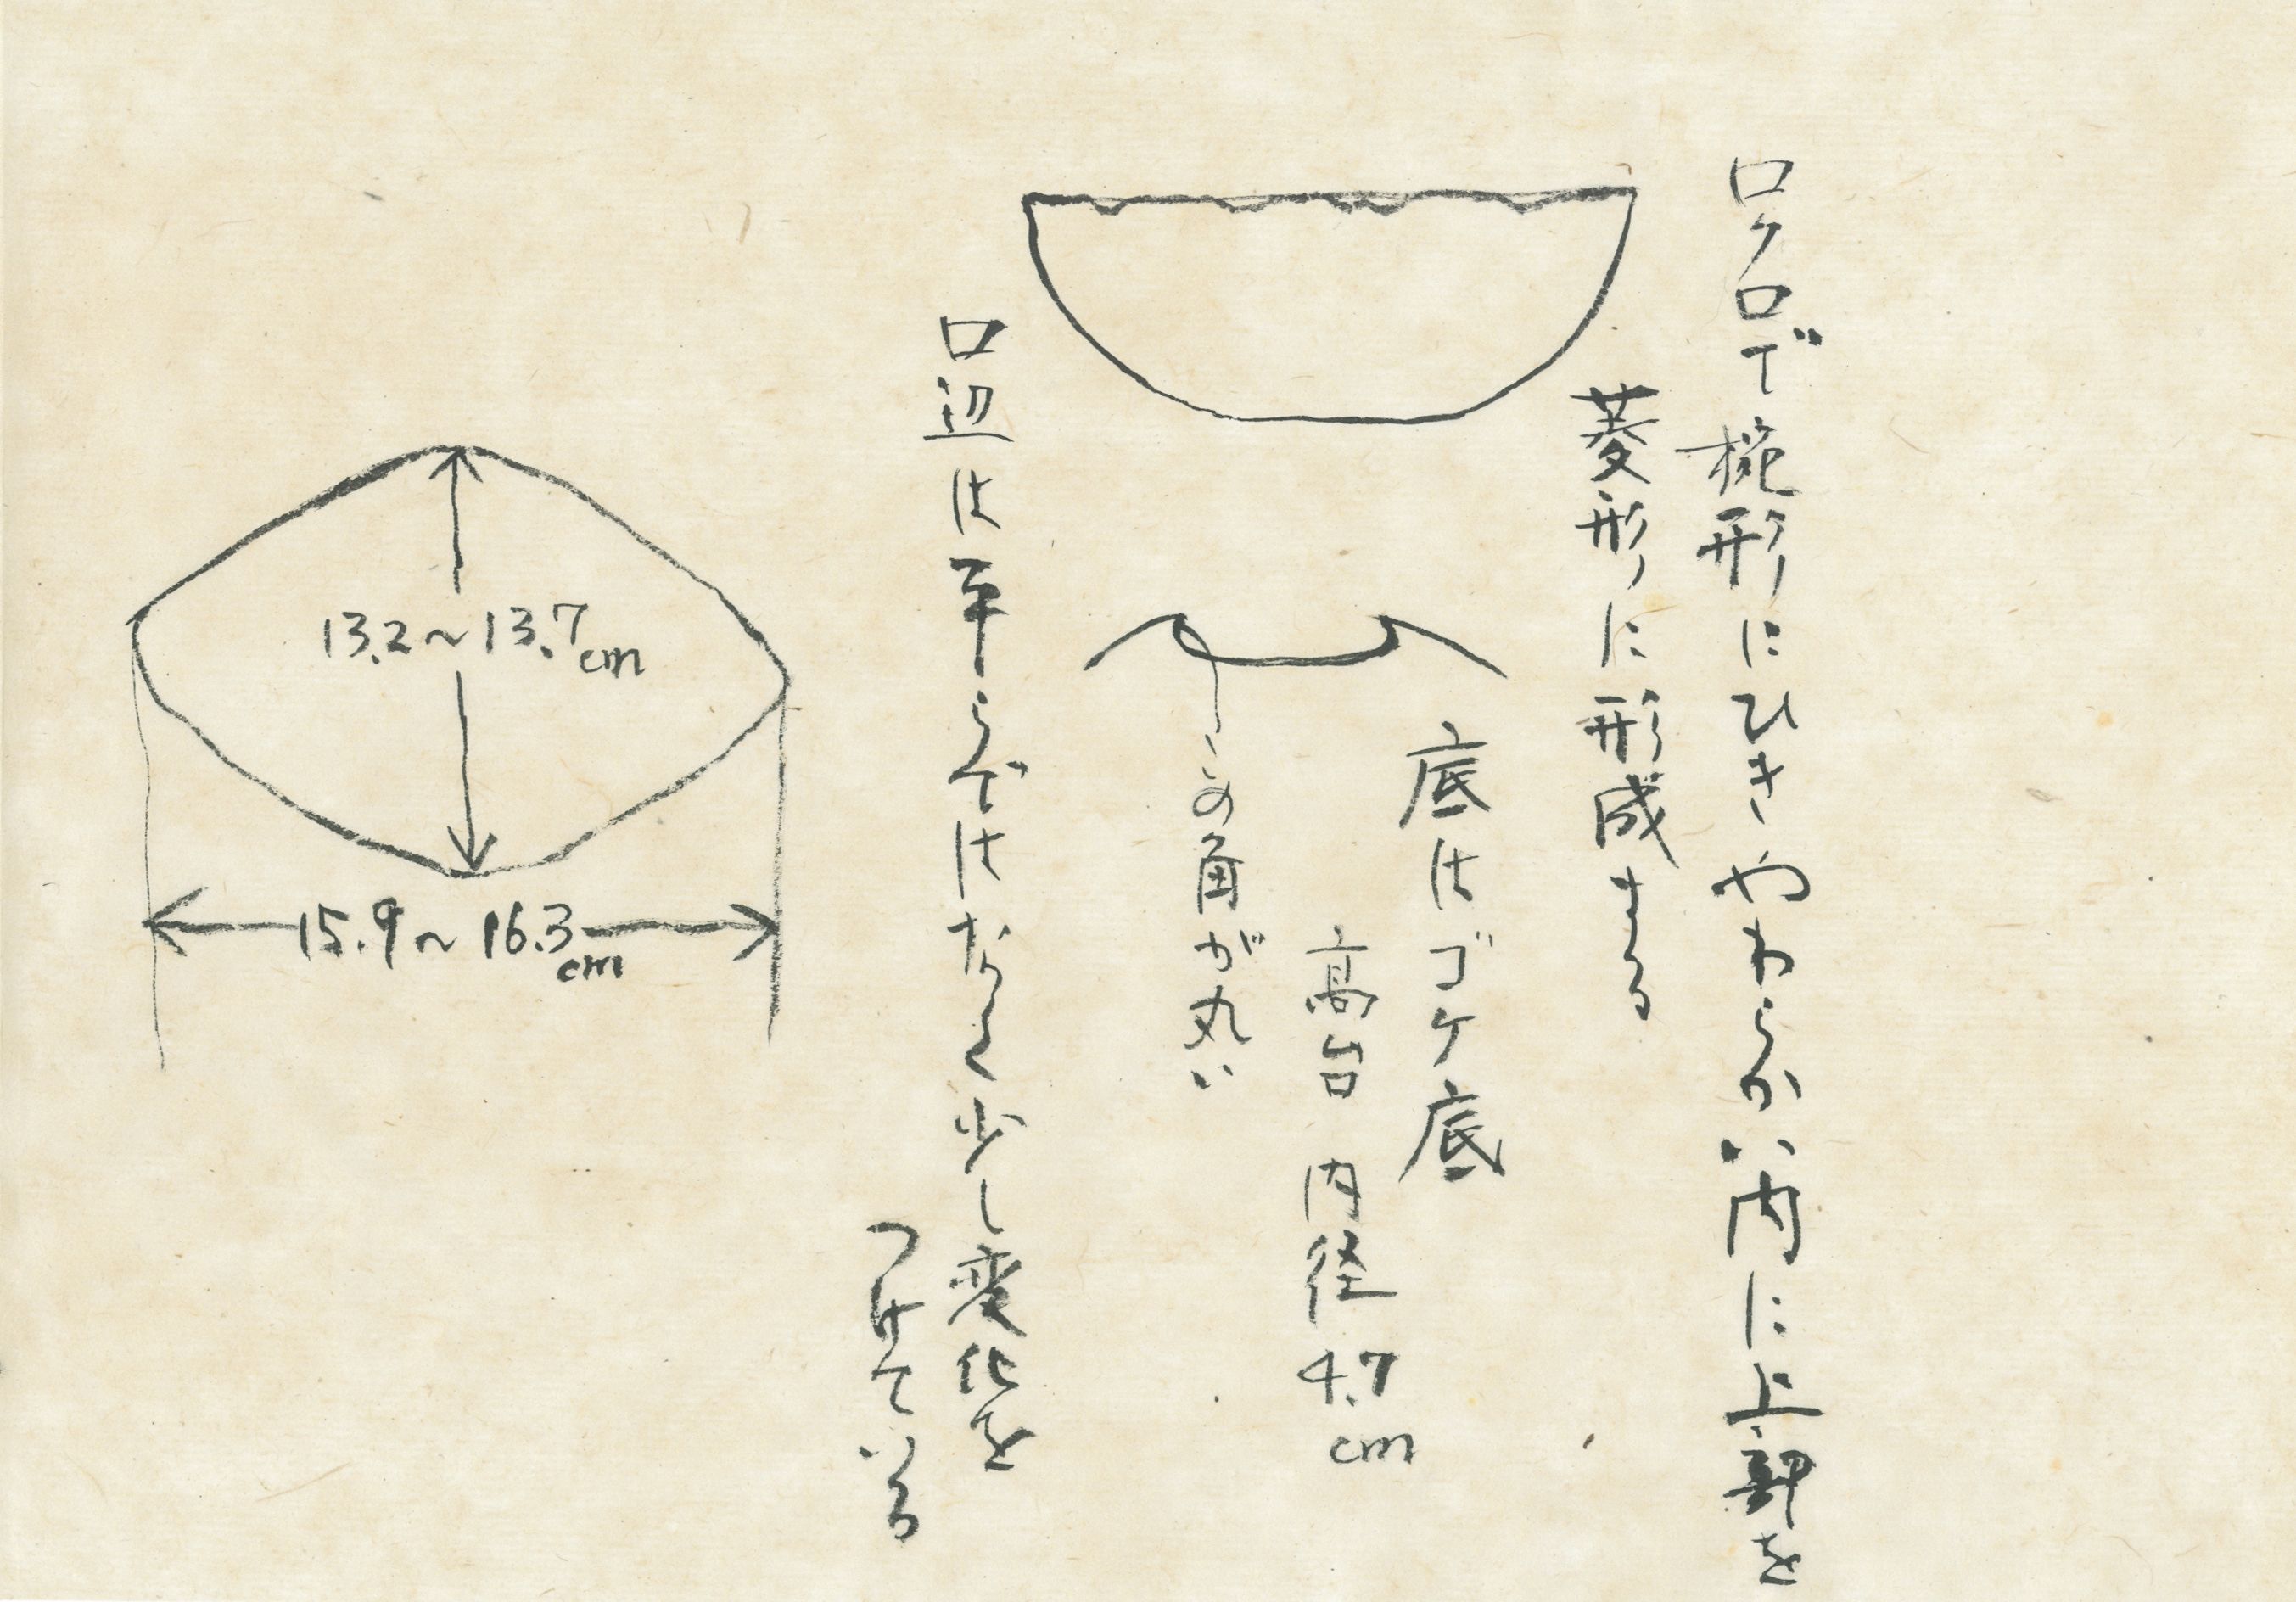 ロクロで椀形にひきやわらかい内に上部を
菱形に形成する
底はゴケ底
高台 内径 4.7cm
この角が丸い
口辺は平らではなく少し変化を
つけている
13.2~13.7cm
15.9~16.3cm